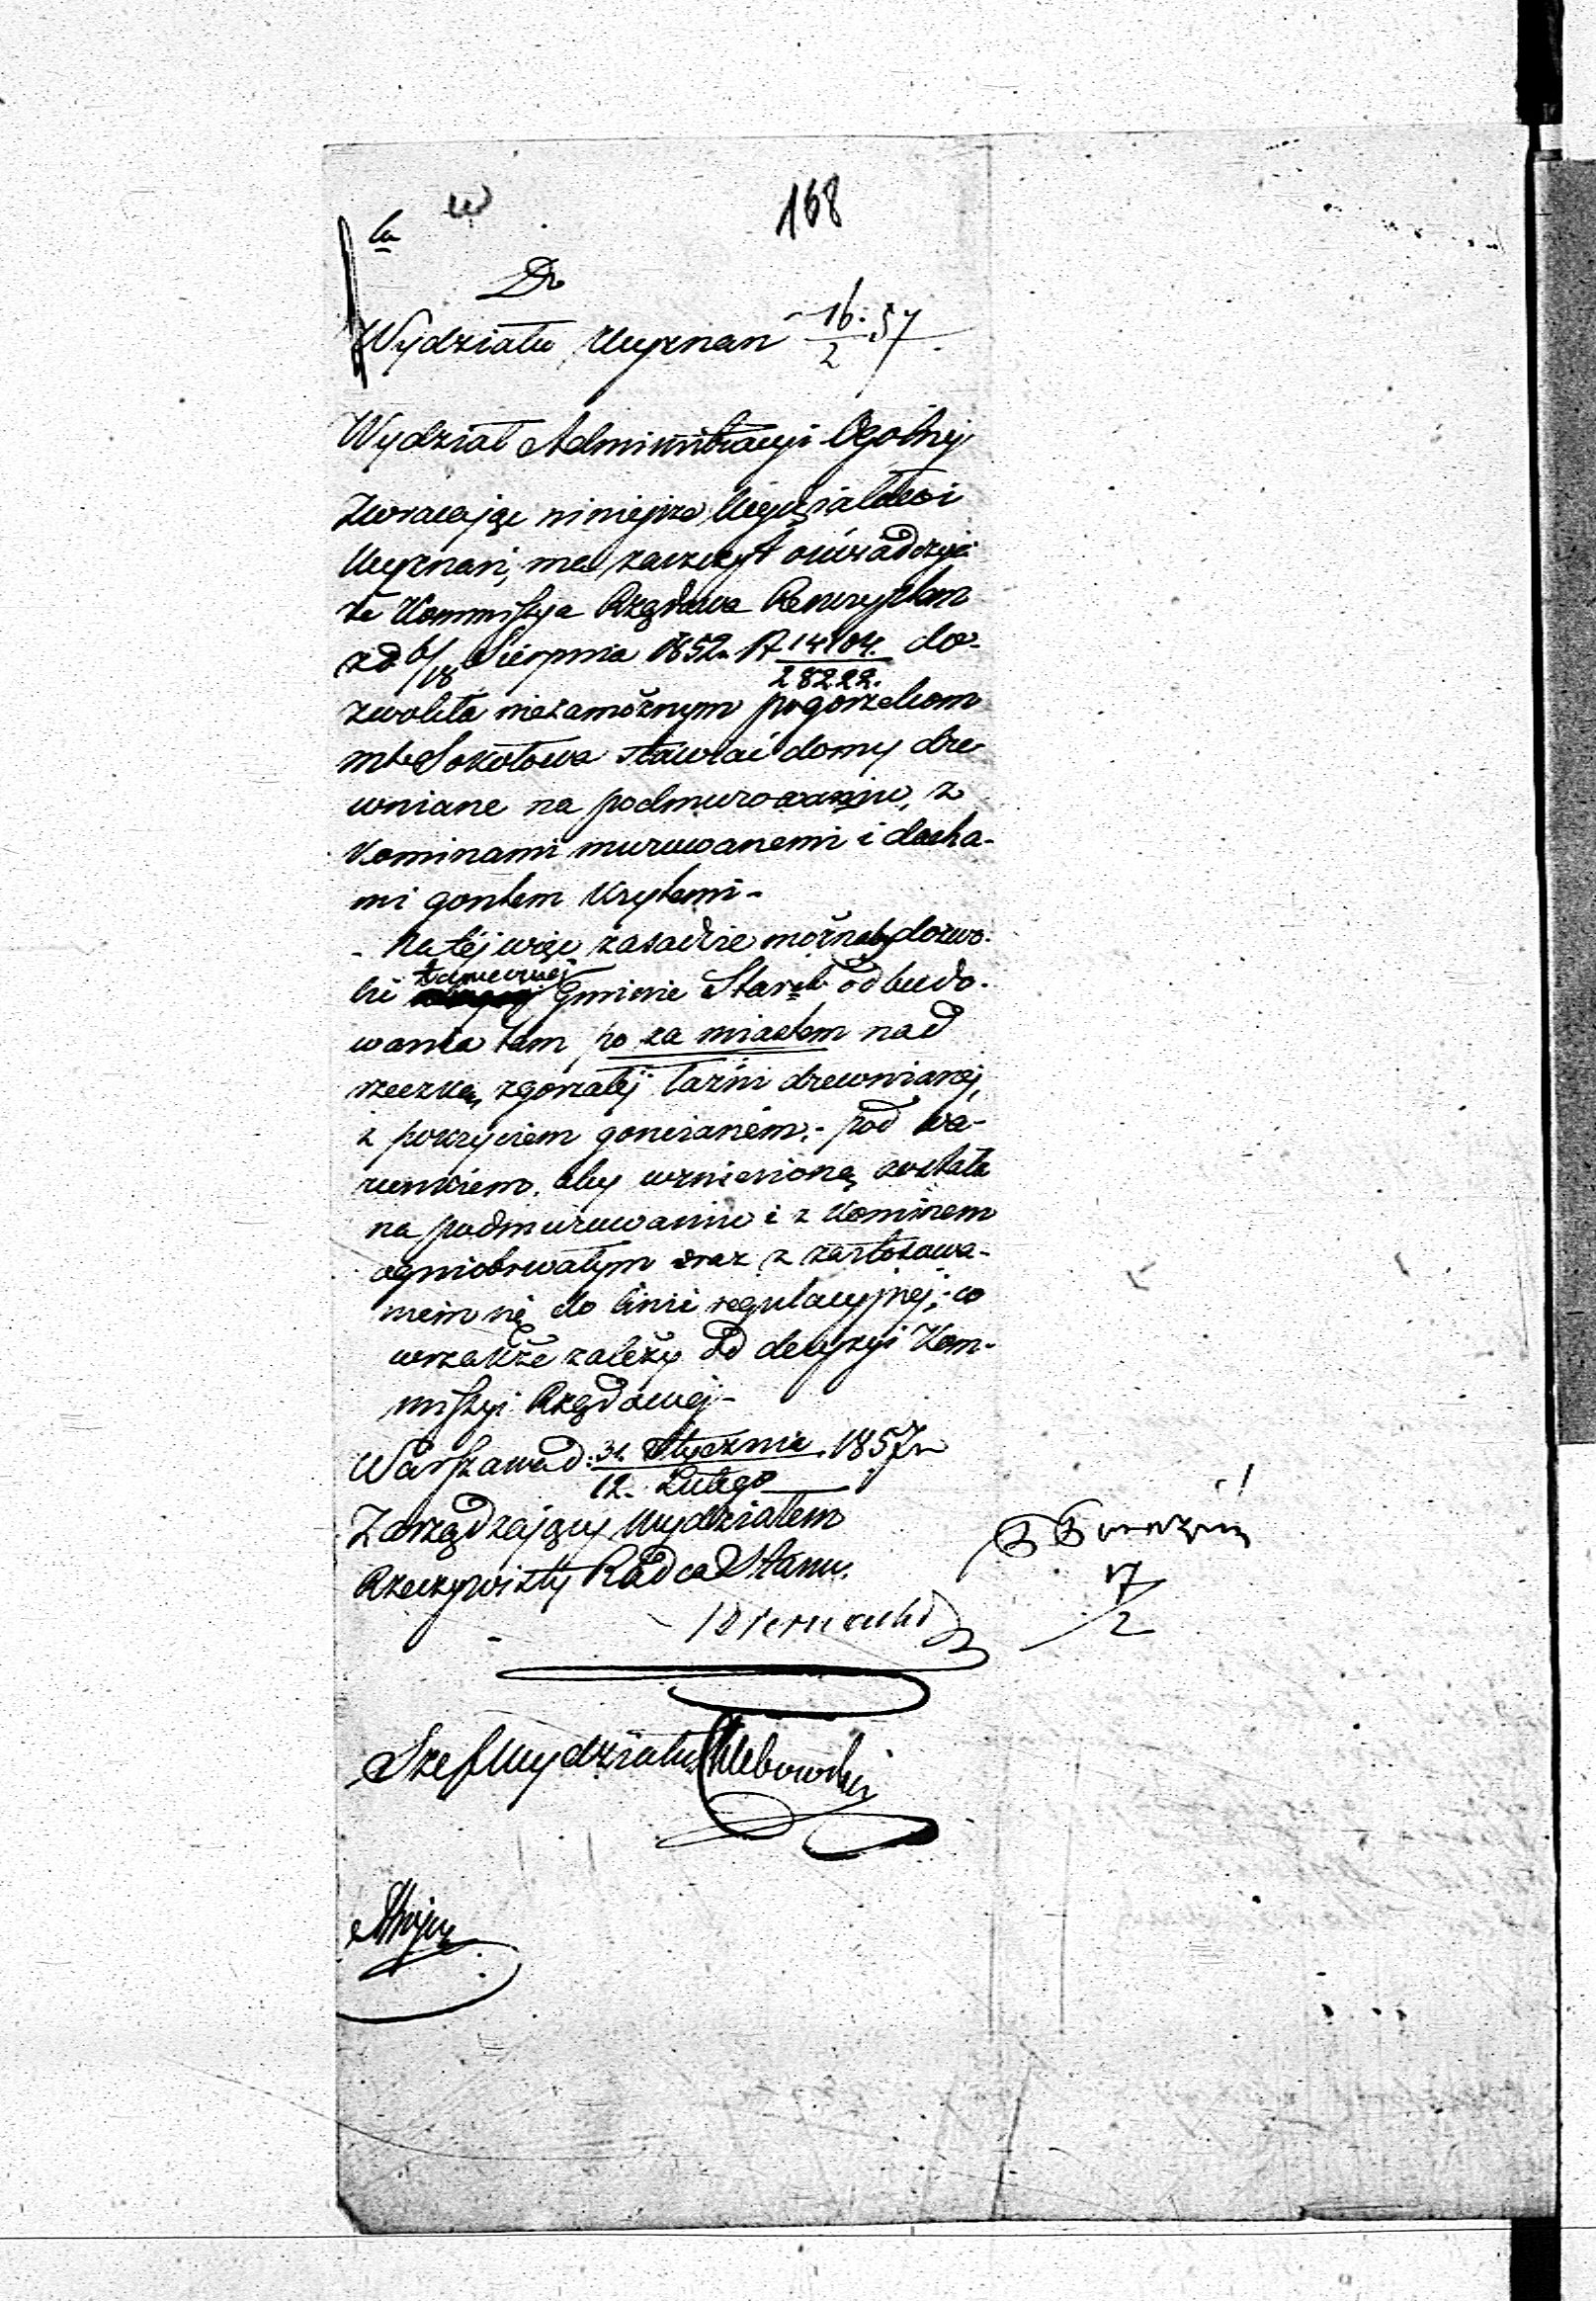 168
Do
Wydziału Wyznań 16/2 57
Wydział Administracyi Ogólnej
Zwracając niniejsze Wydziałowi
Wyznań, ma zaszczyt oświadczyć
że Kommissya Rządowa Reskryptem
z d. 6/18 Sierpnia 1852 r. N 14104/28222. do-
zwoliła niezamożnym pogorzelcom
mta Sokołowa stawiać domy dre-
wniane na podmurowaniu, z
Kominami murowanemi i dacha-
mi gontem Krytemi -
- Na téj więc zasadzie możnaby dozwo-
lić tamecznej Gminie Starch odbudo-
wania tam po za miastem nad
rzeczką zgorzałéj łaźni drewnianéj,
z pokryciem goncianém; - pod wa-
runkiem, aby wzniesioną została
na podmurowaniu i z Kominem
ogniotrwałym oraz z zastosowa-
niem się do linii regulacyjnéj; - co
wszakże zależy od decyzyi Kom-
missyi Rządowéj -
Warszawa d: 31. Stycznia / 12. Lutego 1857 r
Zarządzający Wydziałem
Rzeczywisty Radca Stanu.
Biernacki
17/2
Szef Wydziału Chlebowski